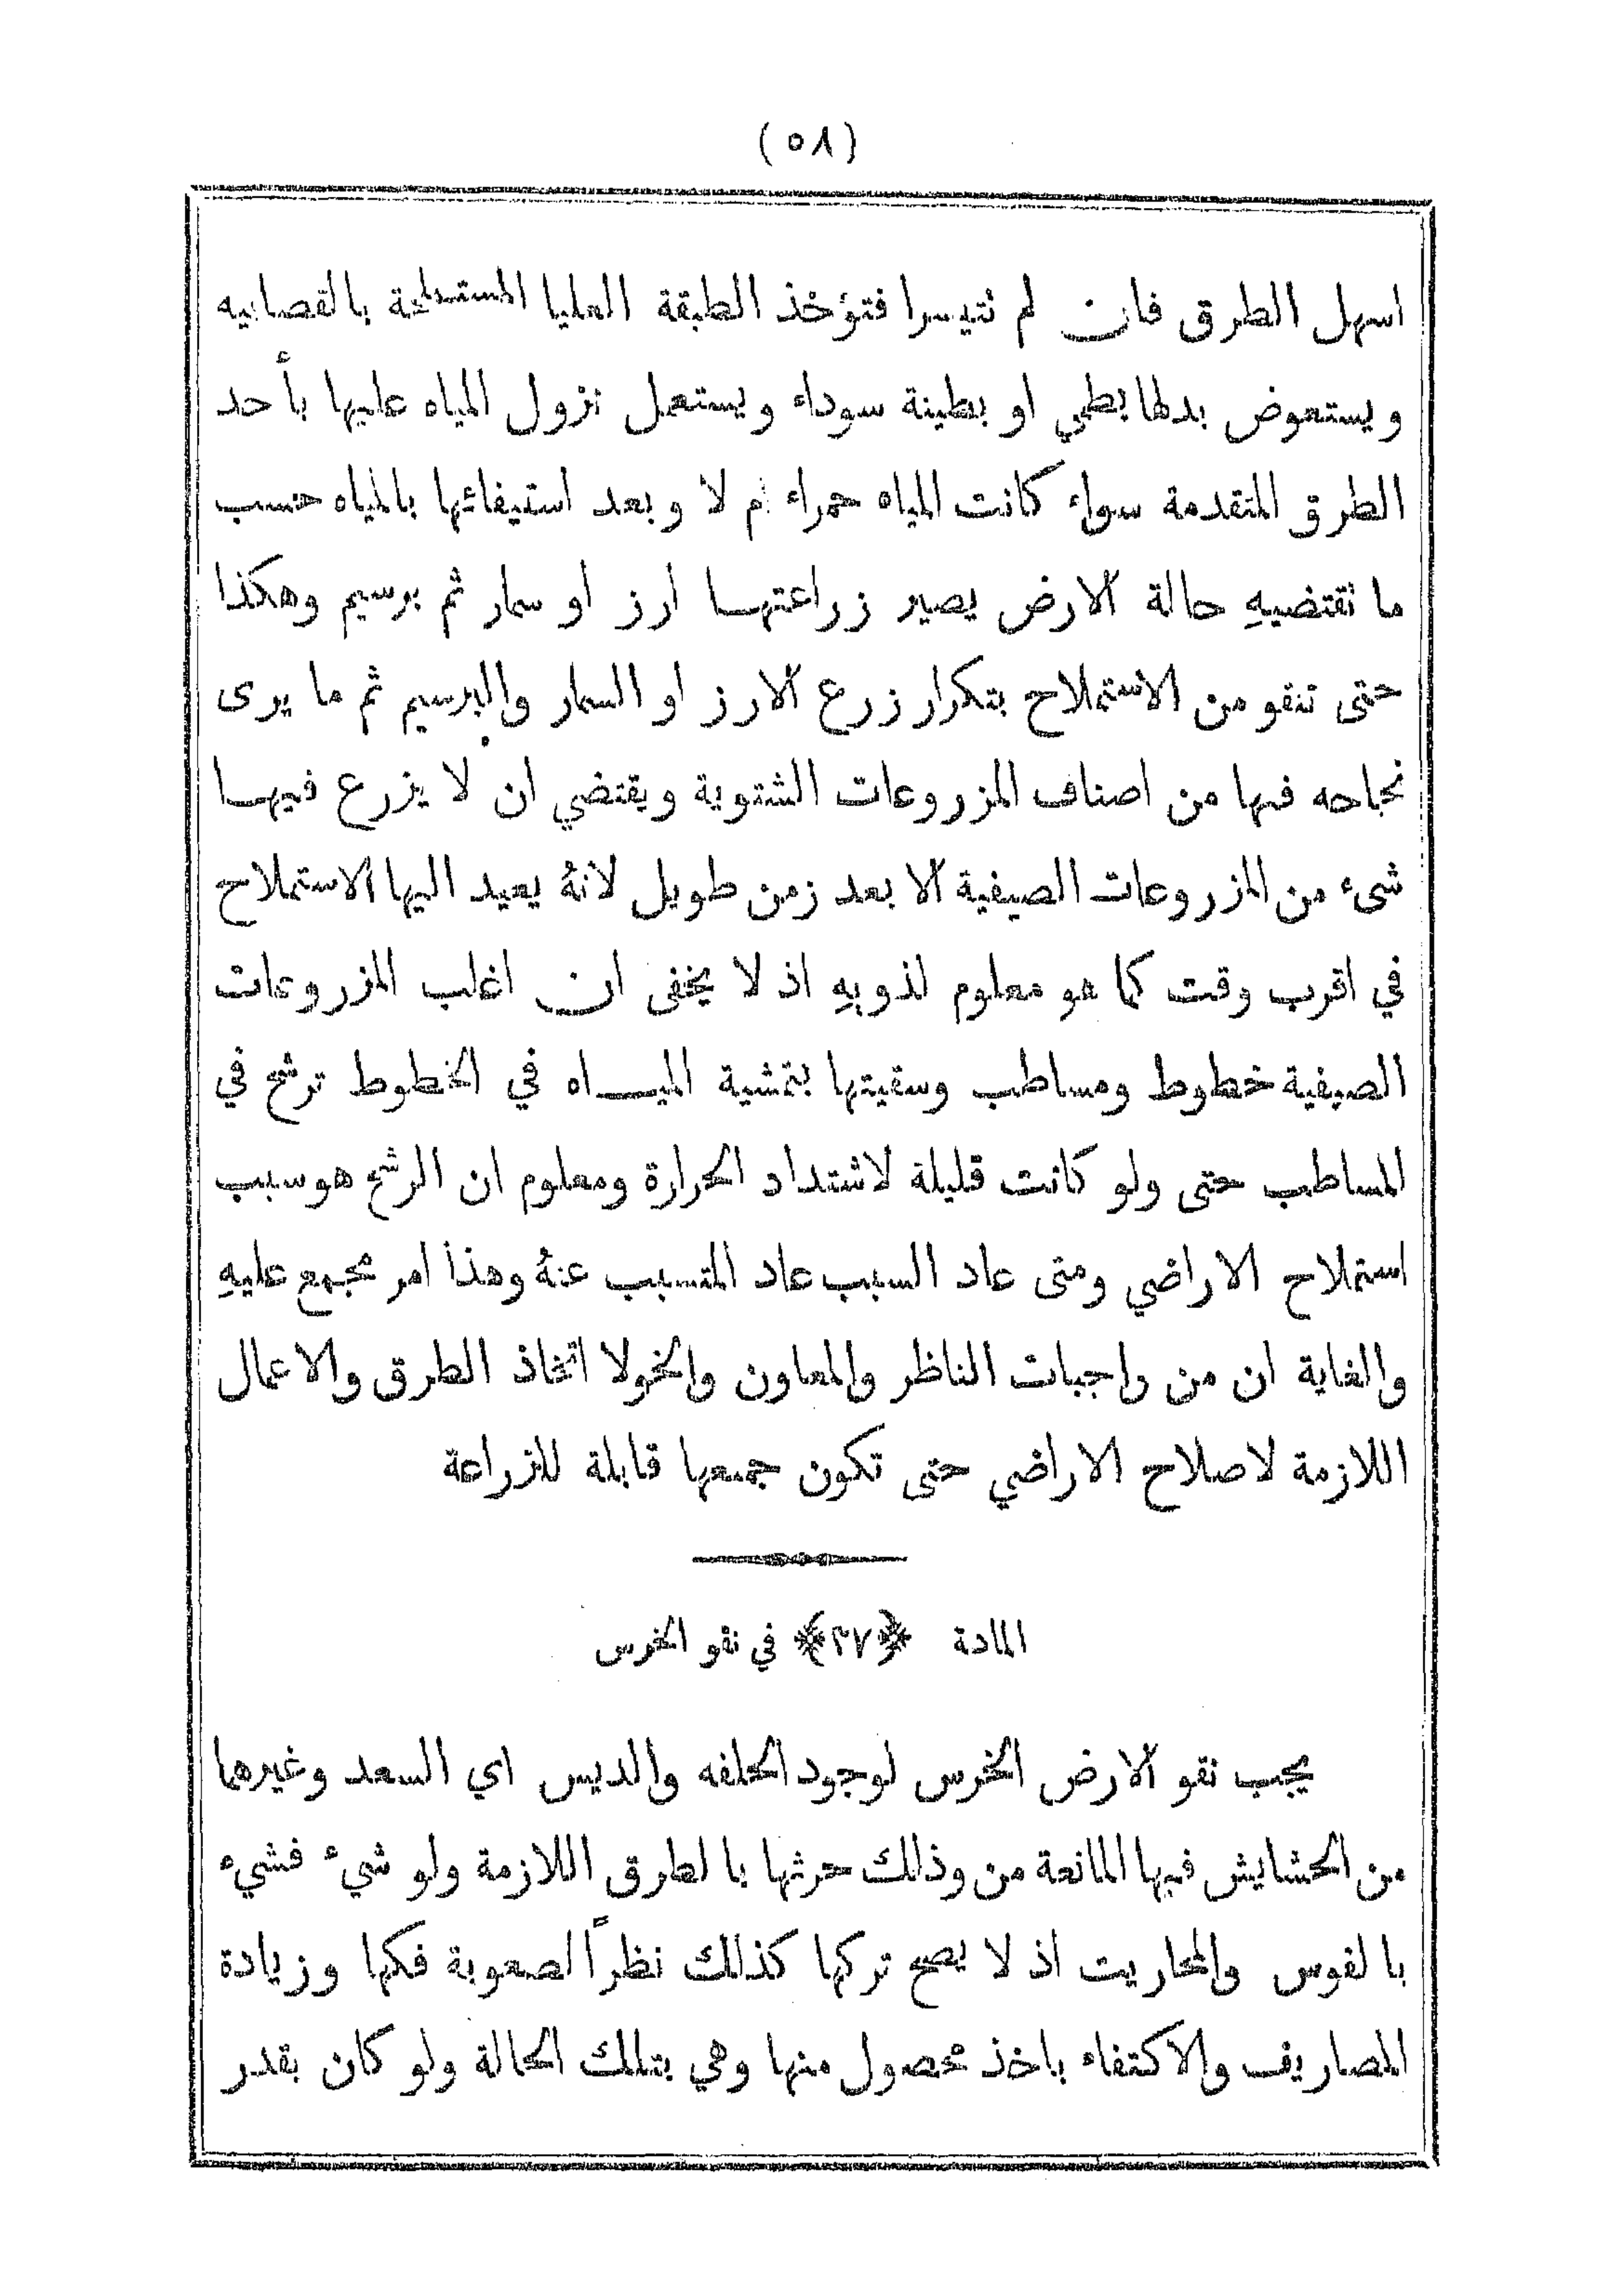 (٥٨)
اسهل الطرق فان لم نتيسرا فتؤخذ الطبقة العليا المستملحة بالقصابيه
ويستعوض بدلها بطمي او بطينة سوداء ويستعمل نزول المياه عليها بأحد
الطرق المتقدمة سواء كانت المياه حمراء ام لا وبعد استيفائها بالمياه حسب
ما نقتضيهِ حالة الارض يصير زراعتها ارز او سمار ثم برسيم وهكذا
حتى تنقو من الاستملاح بتكرار زرع الارز او السمار والبرسيم ثم ما يرى
نجاحه فيها من اصناف المزروعات الشتوية ويقتضي ان لا يزرع فيها
شىء من المزروعات الصيفية الا بعد زمن طويل لانهُ يعيد اليها الاستملاح
في اقرب وقت كما هو معلوم لذويهِ اذ لا يخفى ان اغلب المزروعات
الصيفية خطوط ومساطب وسقيتها بتمشية المياه في الخطوط ترشح في
المساطب حتى ولو كانت قليلة لاشتداد الحرارة ومعلوم ان الرشح هو سبب
استملاح الاراضي ومتى عاد السبب عاد المتسبب عنهُ وهذا امر مجمع عليهِ
والغاية ان من واجبات الناظر والمعاون والخولا اتخاذ الطرق والاعمال
اللازمة لاصلاح الاراضي حتى تكون جميعها قابلة للزراعة
المادة ﴿٢٧﴾ في نقو الخرس
يجب نقو الارض الخرس لوجود الحلفه والديس اي السعد وغيرهما
من الحشايش فيها المانعة من وذلك حرثها بالطرق اللازمة ولو شيء فشيء
بالفوس والمحاريت اذ لا يصح تركها كذلك نظراً لصعوبة فكها وزيادة
المصاريف والاكتفاء باخذ محصول منها وهي بتلك الحالة ولو كان بقدر